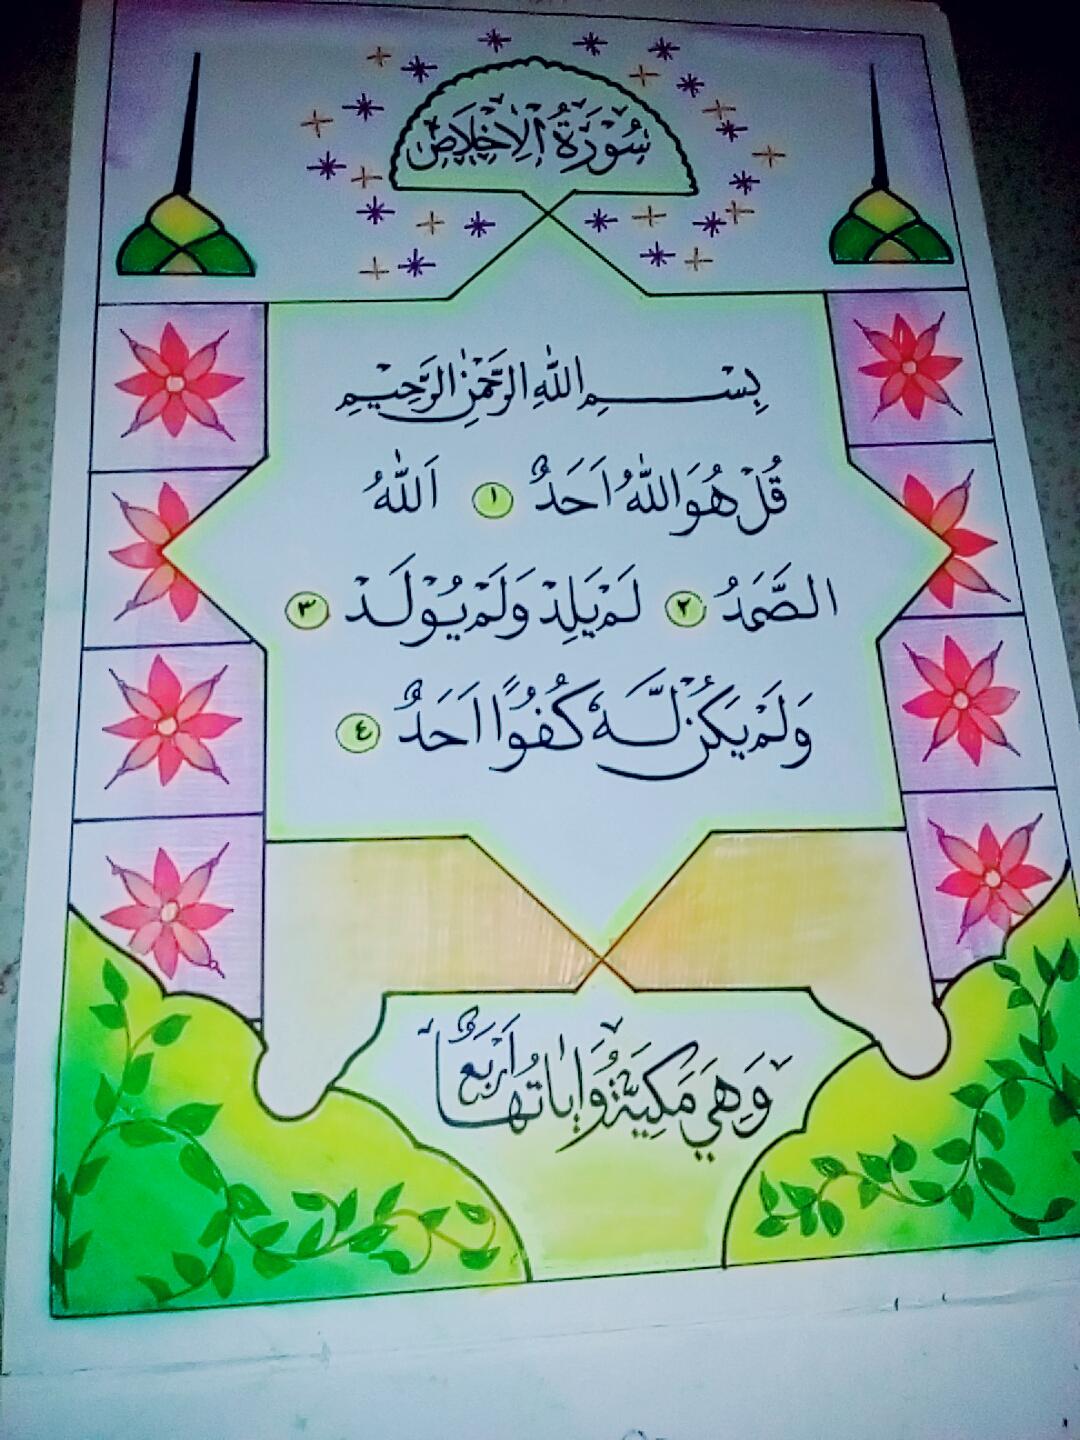 سُوْرَةُ الْاِخْلَاصْ
بِسْــــــمِ اللّٰهِ الرَّحْمٰنِ الرَّحِيْمِ
قُلْ هُوَ اللّٰهُ اَحَدٌ ١ اَللّٰهُ
الصَّمَدُ ٢ لَمْ يَلِدْ وَلَمْ يُوْلَدْ ٣
وَلَمْ يَكُنْ لَّهٗ كُفُوًا اَحَدٌ ٤
وَهِيَ مَكِيَّةٌ وَاٰيَاتُهَا اَرْبَعٌ